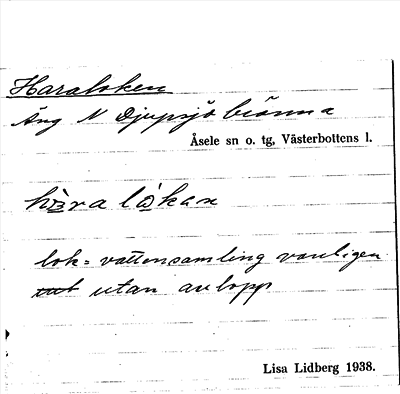 Haraloken
Äng N Djupsjöbränna
Åsele sn o. tg, Västerbottens l.
hàra lòkan
lok = vattensamling vanligen
utan avlopp
Lisa Lidberg 1938.